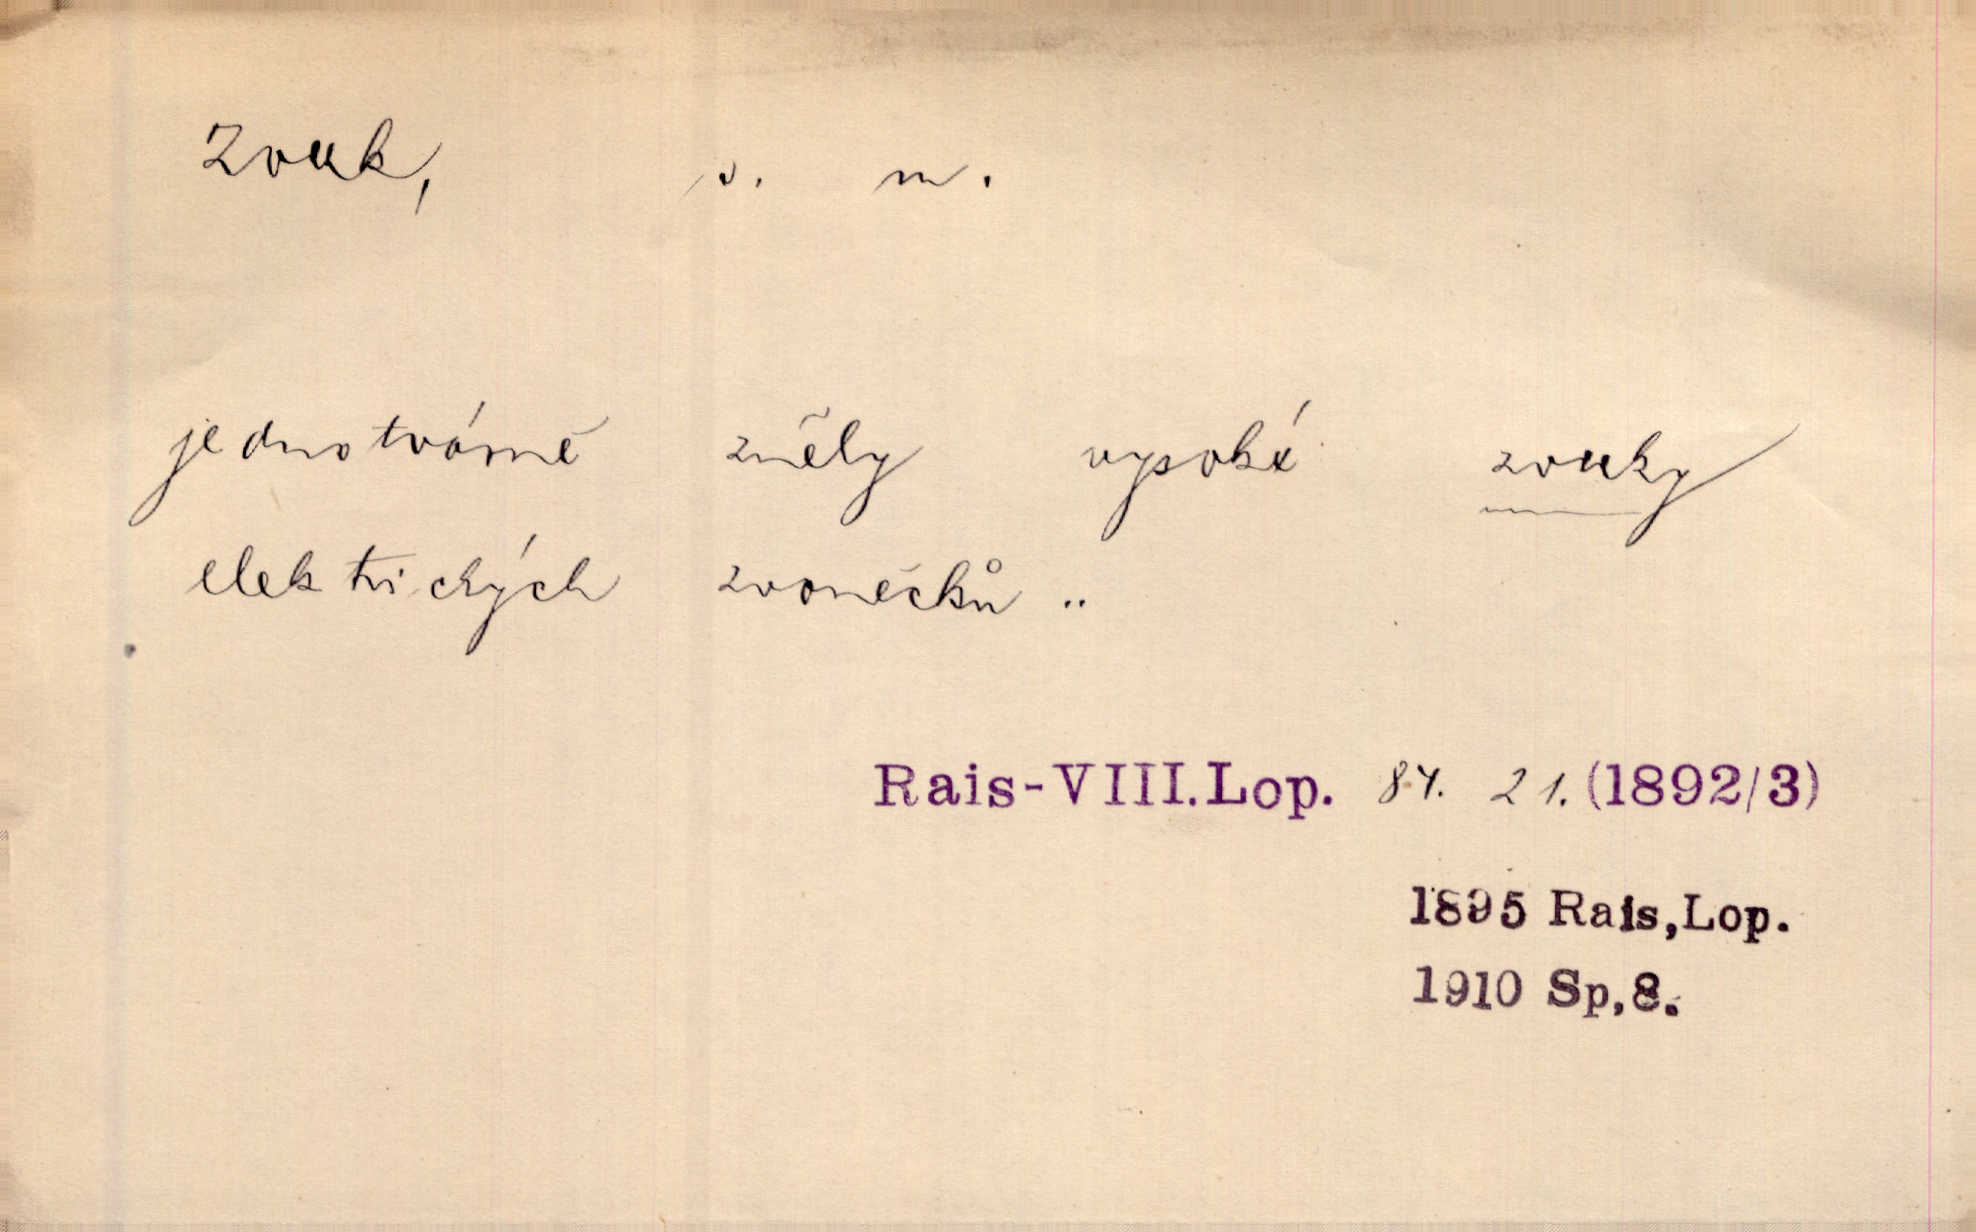 Zvuk, s. m.
jednotvárně zněly vysoké zvuky
elektrických zvonečků ..
Rais-VIII.Lop. 84. 21. (1892/3)
1895 Rais,Lop.
1910 Sp,8.